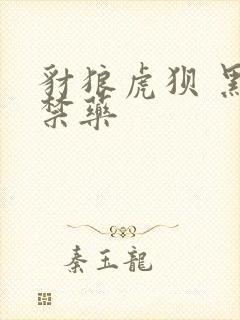 豺狼虎狈
禁藥
秦玉龍